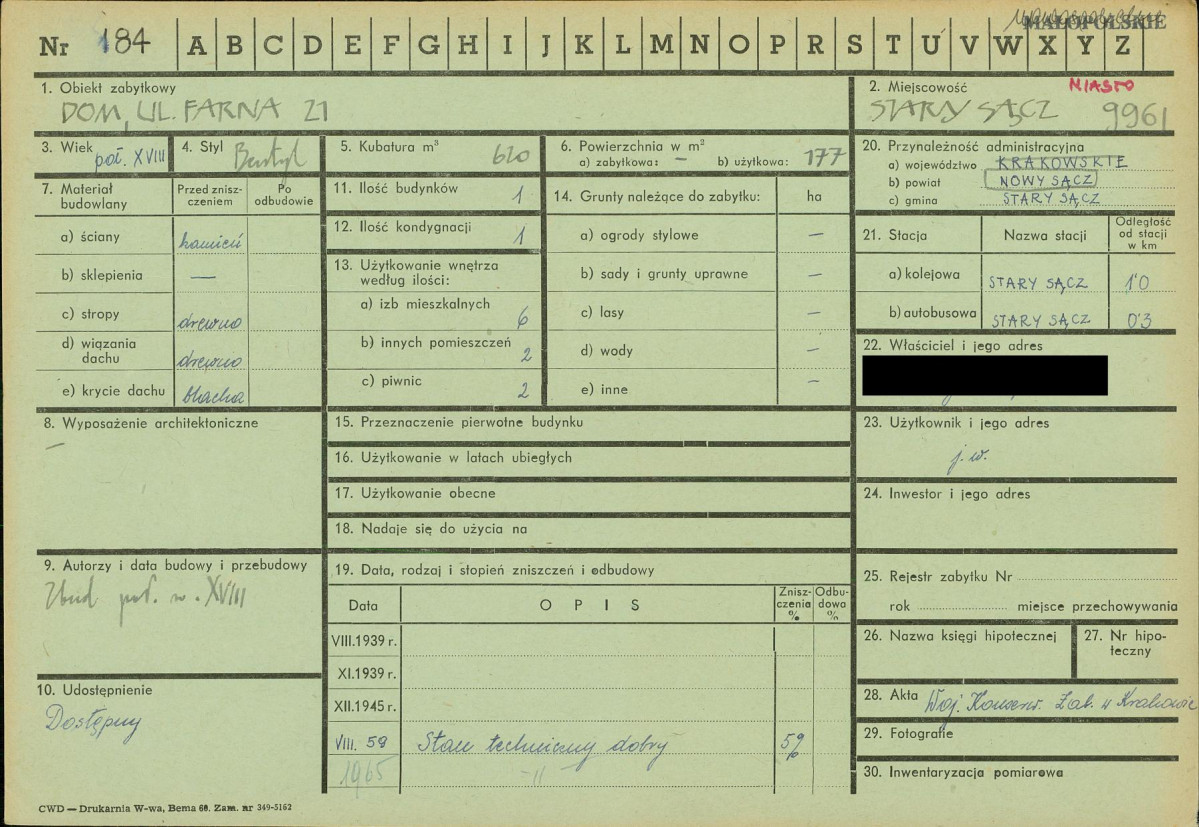 MAŁOPOLSKIE
Nr 184 A B C D E F G H I J K L M N O P R S T U V W X Y Z
1. Obiekt zabytkowy
DOM, UL. FARNA 21
2. Miejscowość MIASTO
STARY SĄCZ 9961
3. Wiek poł. XVIII
4. Styl Bezstyl
5. Kubatura m³ 620
6. Powierzchnia w m²
a) zabytkowa: — b) użytkowa: 177
20. Przynależność administracyjna
a) województwo KRAKOWSKIE
b) powiat NOWY SĄCZ
c) gmina STARY SĄCZ
7. Materiał budowlany
Przed zniszczeniem
Po odbudowie
a) ściany kamień
b) sklepienia —
c) stropy drewno
d) wiązania dachu drewno
e) krycie dachu blacha
11. Ilość budynków 1
12. Ilość kondygnacji 1
13. Użytkowanie wnętrza
według ilości:
a) izb mieszkalnych 6
b) innych pomieszczeń 2
c) piwnic 2
14. Grunty należące do zabytku: ha
a) ogrody stylowe —
b) sady i grunty uprawne —
c) lasy —
d) wody —
e) inne —
21. Stacja Nazwa stacji Odległość od stacji w km
a) kolejowa STARY SĄCZ 1'0
b) autobusowa STARY SĄCZ 0'3
22. Właściciel i jego adres
8. Wyposażenie architektoniczne
—
15. Przeznaczenie pierwotne budynku
16. Użytkowanie w latach ubiegłych
17. Użytkowanie obecne
18. Nadaje się do użycia na
23. Użytkownik i jego adres
j. w.
24. Inwestor i jego adres
9. Autorzy i data budowy i przebudowy
Zbud. poł. w. XVIII
19. Data, rodzaj i stopień zniszczeń i odbudowy
Data OPIS Zniszczenia % Odbudowa %
VIII.1939 r.
XI.1939 r.
XII.1945 r.
VIII. 59 Stan techniczny dobry 5%
1965 -"-
25. Rejestr zabytku Nr
rok miejsce przechowywania
26. Nazwa księgi hipotecznej
27. Nr hipoteczny
10. Udostępnienie
Dostępny
28. Akta Woj. Konserw. Zab. w Krakowie
29. Fotografie
30. Inwentaryzacja pomiarowa
CWD — Drukarnia W-wa, Bema 60. Zam. nr 349-5162